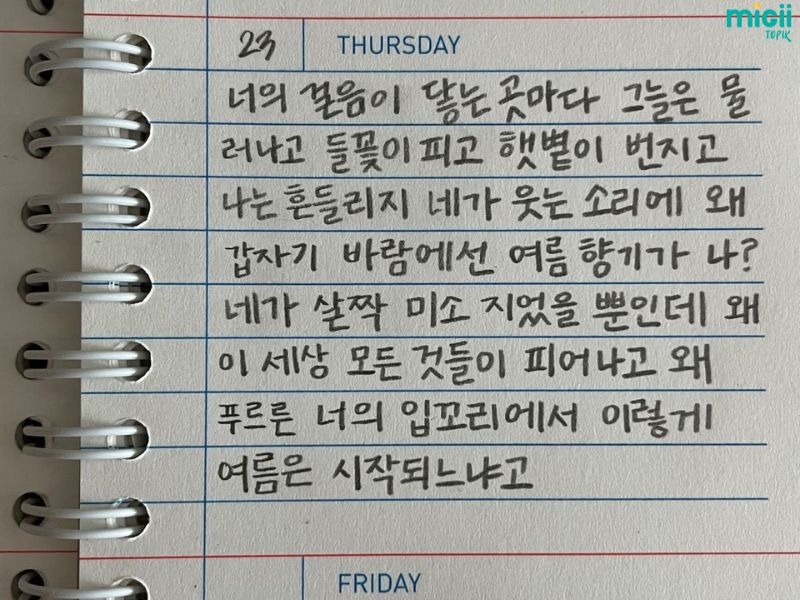 migii
TOPIK
23 THURSDAY
너의 걸음이 닿는 곳마다 그늘은 물
러나고 들꽃이 피고 햇볕이 번지고
나는 흔들리지 네가 웃는 소리에 왜
갑자기 바람에선 여름 향기가 나?
네가 살짝 미소 지었을 뿐인데 왜
이 세상 모든 것들이 피어나고 왜
푸르른 너의 입꼬리에서 이렇게
여름은 시작되느냐고
FRIDAY